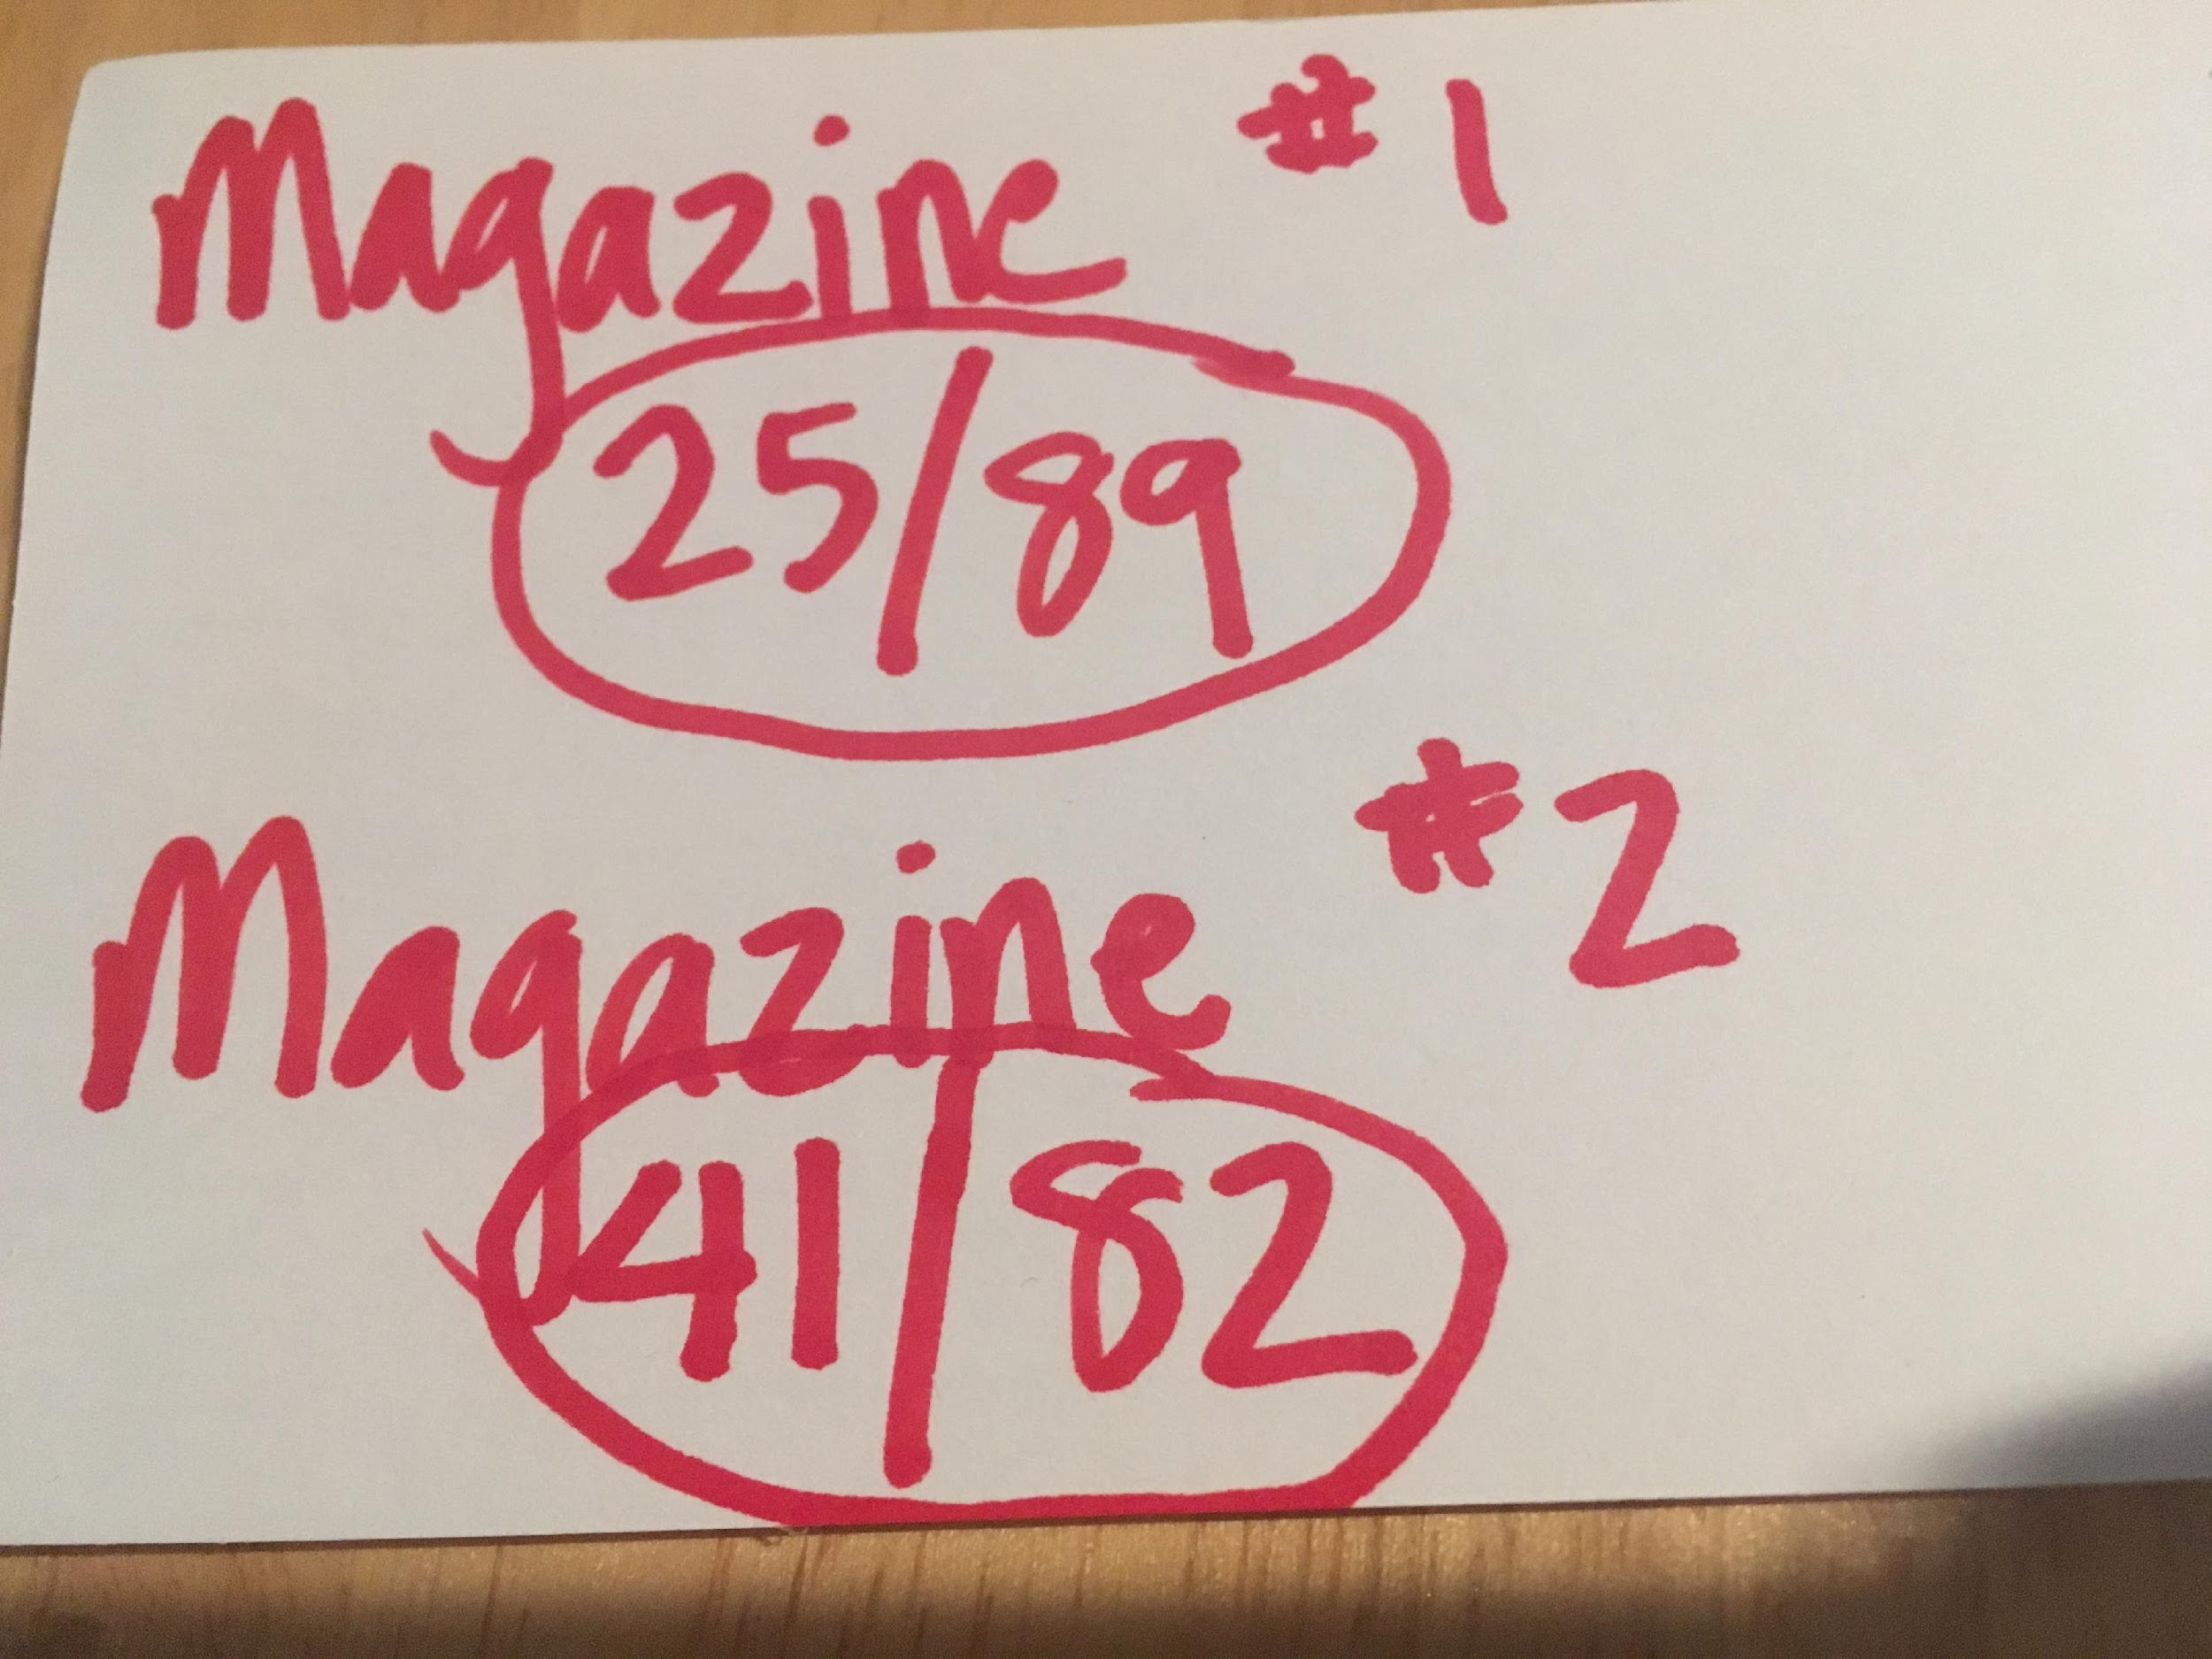 Magazine #1
25/89
Magazine #2
41/82